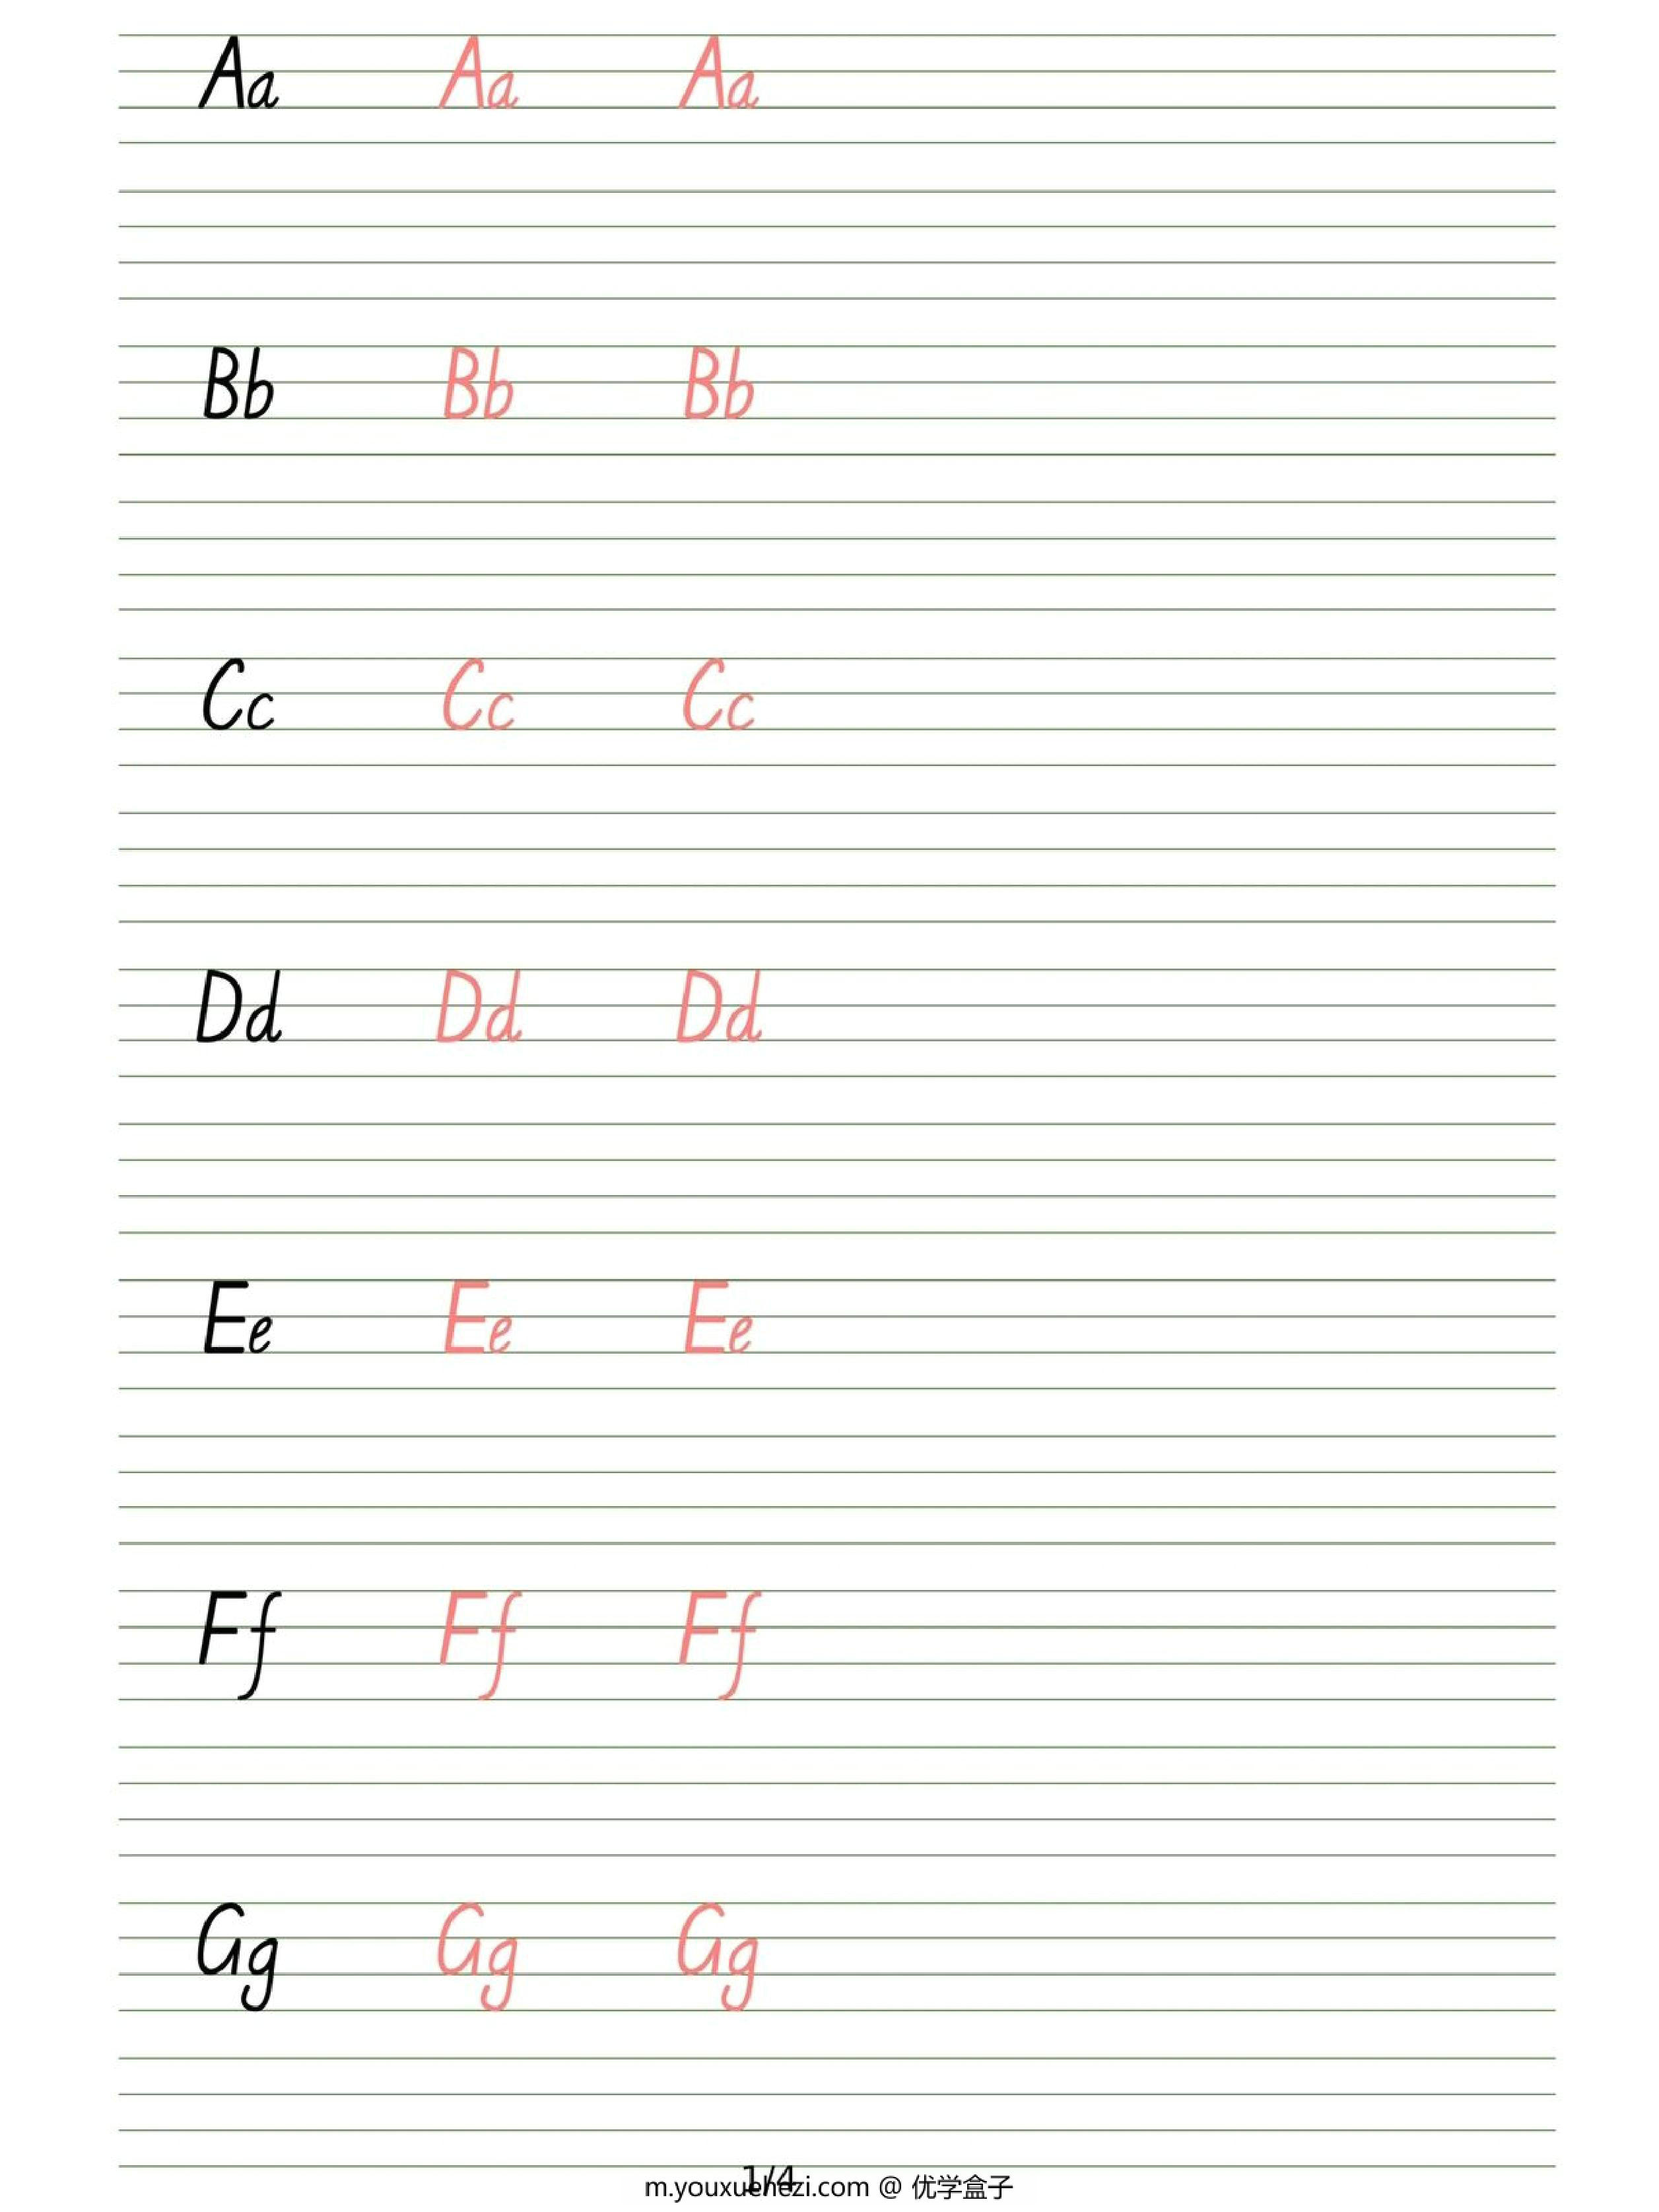 Aa Aa Aa
Bb Bb Bb
Cc Cc Cc
Dd Dd Dd
Ee Ee Ee
Ff Ff Ff
Gg Gg Gg
1/4
m.youxuehezi.com @ 优学盒子